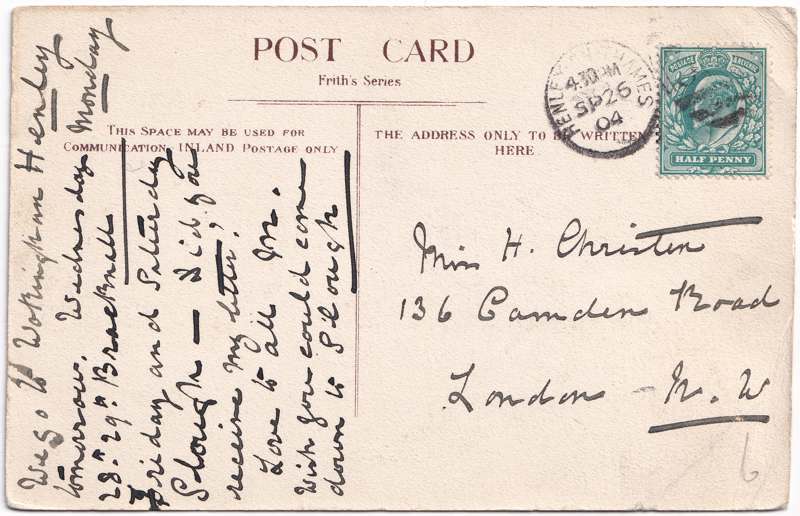 POST CARD
Frith's Series
THIS SPACE MAY BE USED FOR
COMMUNICATION INLAND POSTAGE ONLY
THE ADDRESS ONLY TO BE WRITTEN
HERE
HENLEY THAMES
4.30 PM
SP 26
04
POSTAGE REVENUE
HALF PENNY
Henley
Monday
We go to Wokingham
tomorrow. Wednesday
28th 29th Bracknell
Friday and Saturday
Slough — Did you
receive my letter?
Love to all M.
Wish you could come
down to Slough
Miss H. Christen
136 Camden Road
London - N. W
6